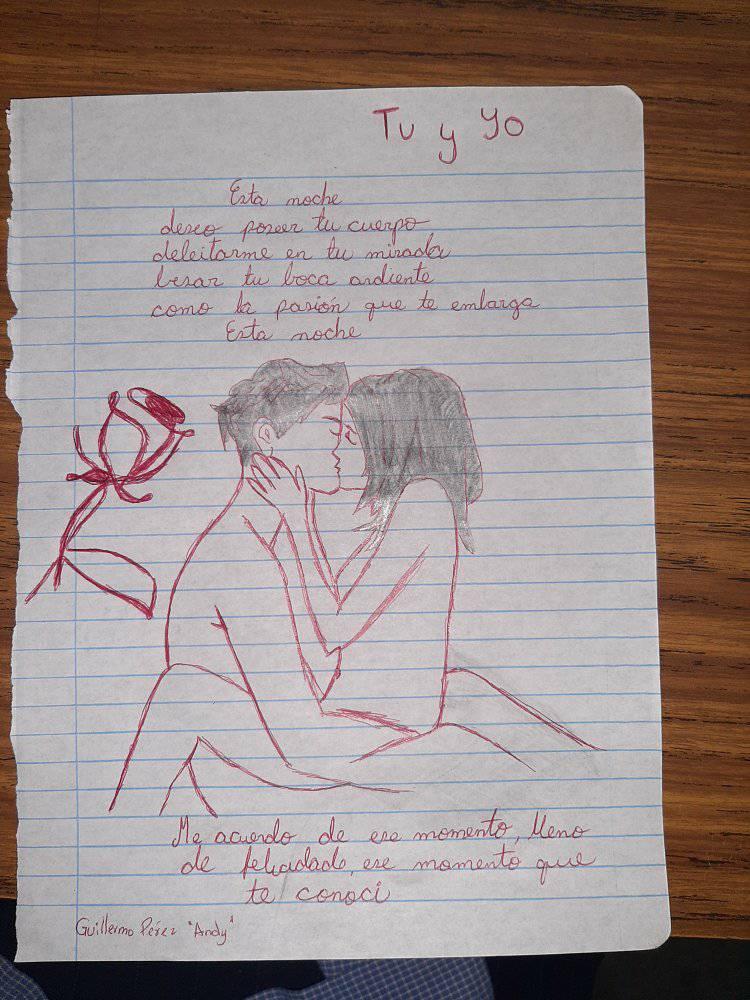 Tu y yo
Esta noche
deseo poseer tu cuerpo
deleitarme en tu mirada
besar tu boca ardiente
como la pasión que te embarga
Esta noche
Me acuerdo de ese momento, lleno
de felicidado, ese momento que
te conocí
Guillermo Pérez "Andy"